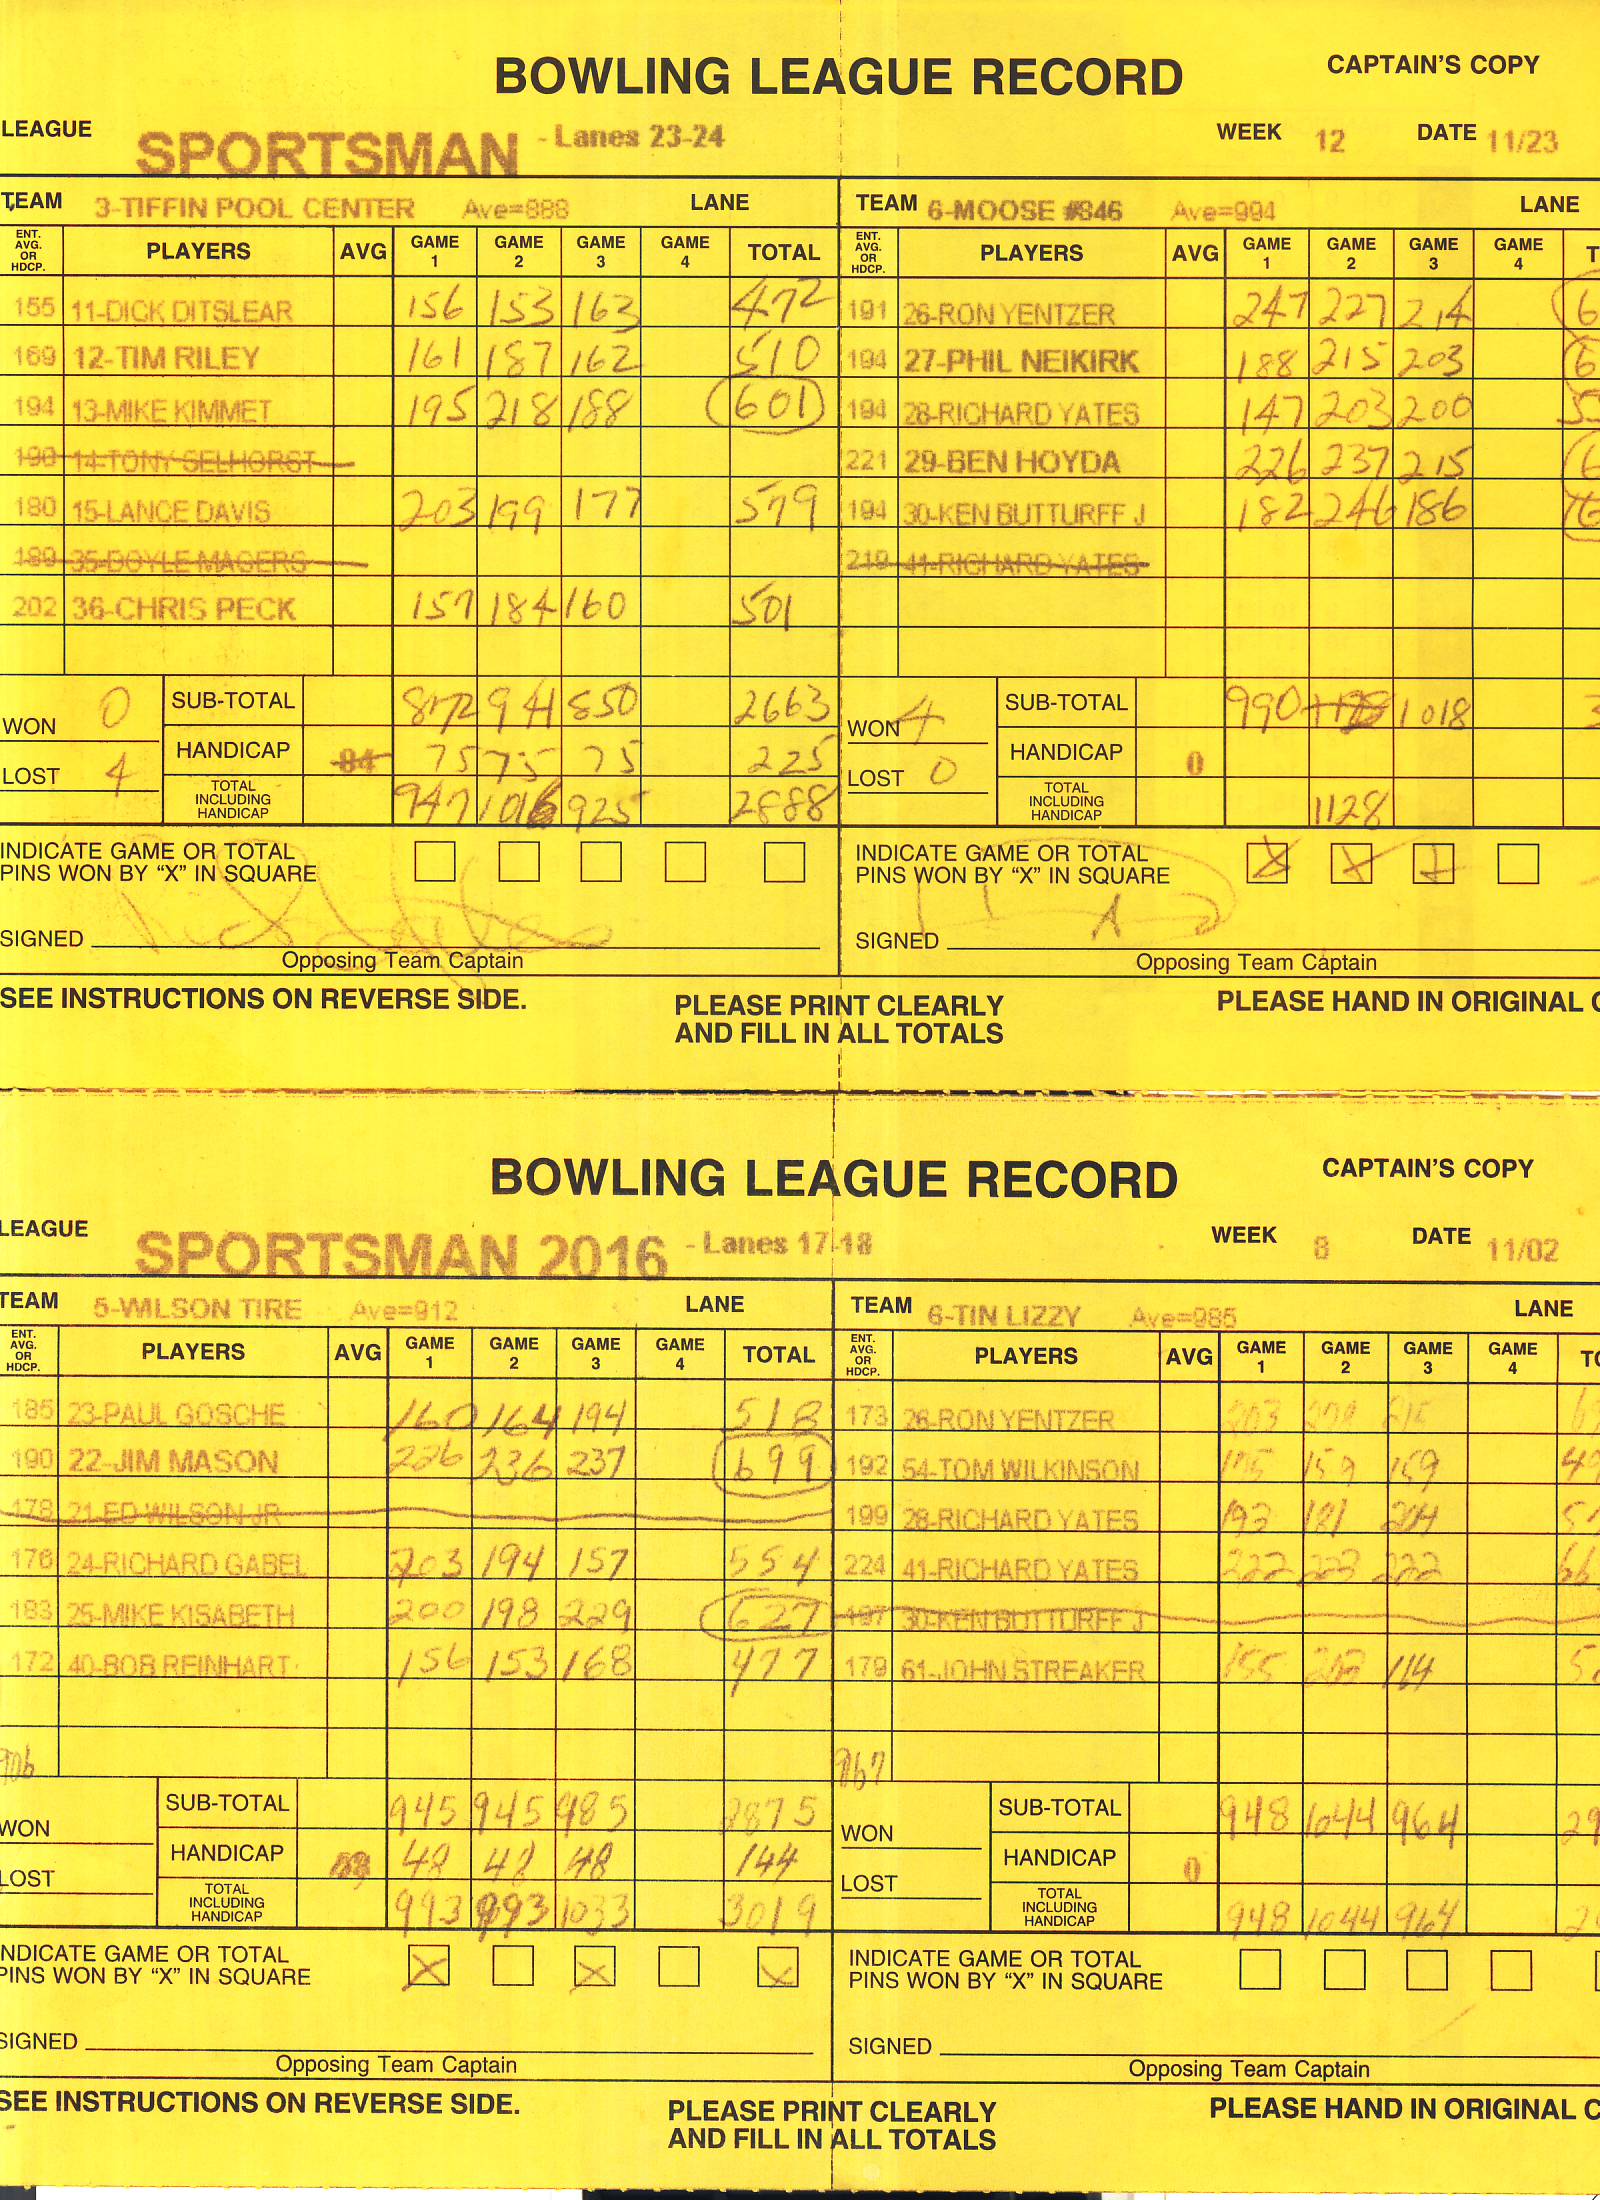 BOWLING LEAGUE RECORD CAPTAIN'S COPY
LEAGUE SPORTSMAN - Lanes 23-24 WEEK 12 DATE 11/23
TEAM 3-TIFFIN POOL CENTER Ave=888 LANE TEAM 6-MOOSE #846 Ave=994 LANE
ENT. AVG. OR HDCP. PLAYERS AVG GAME 1 GAME 2 GAME 3 GAME 4 TOTAL ENT. AVG. OR HDCP. PLAYERS AVG GAME 1 GAME 2 GAME 3 GAME 4
155 11-DICK DITSLEAR 156 153 163 472 191 26-RON YENTZER 247 227 214
169 12-TIM RILEY 161 187 162 510 194 27-PHIL NEIKIRK 188 215 203
194 13-MIKE KIMMET 195 218 188 601 194 28-RICHARD YATES 147 203 200
190 14-TONY SELHORST 221 29-BEN HOYDA 226 237 215
180 15-LANCE DAVIS 203 199 177 579 194 30-KEN BUTTURFF J 182 246 186
189 35-DOYLE MAGERS 219 41-RICHARD YATES
202 36-CHRIS PECK 157 184 160 501
WON 0 SUB-TOTAL 872 941 850 2663 WON 4 SUB-TOTAL 990 1018
LOST 4 HANDICAP 84 75 75 75 225 LOST 0 HANDICAP 0
TOTAL INCLUDING HANDICAP 947 1016 925 2888 TOTAL INCLUDING HANDICAP 1128
INDICATE GAME OR TOTAL INDICATE GAME OR TOTAL
PINS WON BY “X” IN SQUARE PINS WON BY “X” IN SQUARE X X X
SIGNED SIGNED
Opposing Team Captain Opposing Team Captain
SEE INSTRUCTIONS ON REVERSE SIDE. PLEASE PRINT CLEARLY PLEASE HAND IN ORIGINAL
AND FILL IN ALL TOTALS
BOWLING LEAGUE RECORD CAPTAIN'S COPY
LEAGUE SPORTSMAN 2016 - Lanes 17-18 WEEK 8 DATE 11/02
TEAM 5-WILSON TIRE Ave=912 LANE TEAM 6-TIN LIZZY Ave=985 LANE
ENT. AVG. OR HDCP. PLAYERS AVG GAME 1 GAME 2 GAME 3 GAME 4 TOTAL ENT. AVG. OR HDCP. PLAYERS AVG GAME 1 GAME 2 GAME 3 GAME 4
185 23-PAUL GOSCHE 160 164 194 518 173 26-RON YENTZER 203
190 22-JIM MASON 226 236 237 699 192 54-TOM WILKINSON 175 159 159
178 21-ED WILSON JR 199 28-RICHARD YATES 193 181 204
176 24-RICHARD GABEL 203 194 157 554 224 41-RICHARD YATES 222 223 222
183 25-MIKE KISABETH 200 198 229 627 197 30-KEN BUTTURFF J
172 40-BOB REINHART 156 153 168 477 179 61-JOHN STREAKER 155 203 114
906 967
WON SUB-TOTAL 945 945 985 2875 WON SUB-TOTAL 948 1044 964
LOST HANDICAP 48 48 48 144 LOST HANDICAP 0
TOTAL INCLUDING HANDICAP 993 993 1033 3019 TOTAL INCLUDING HANDICAP 948 1044 964
INDICATE GAME OR TOTAL INDICATE GAME OR TOTAL
PINS WON BY “X” IN SQUARE X X X PINS WON BY “X” IN SQUARE
SIGNED SIGNED
Opposing Team Captain Opposing Team Captain
SEE INSTRUCTIONS ON REVERSE SIDE. PLEASE PRINT CLEARLY PLEASE HAND IN ORIGINAL
AND FILL IN ALL TOTALS